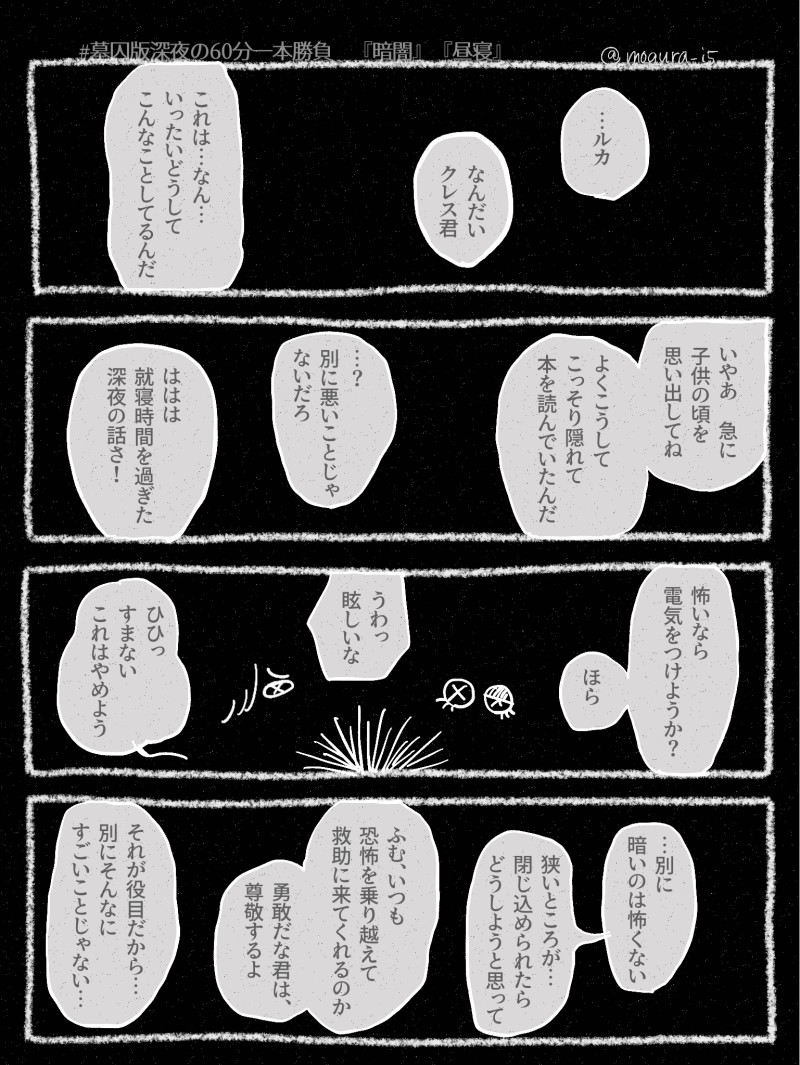 #墓囚版深夜の60分一本勝負 『暗闇』『昼寝』
@mogura_i5
…ルカ
なんだい
クレス君
これは…なん…
いったいどうして
こんなことしてるんだ
いやあ 急に
子供の頃を
思い出してね
よくこうして
こっそり隠れて
本を読んでいたんだ
…?
別に悪いことじゃ
ないだろ
ははは
就寝時間を過ぎた
深夜の話さ!
怖いなら
電気をつけようか?
ほら
うわっ
眩しいな
ひひっ
すまない
これはやめよう
…別に
暗いのは怖くない
狭いところが…
閉じ込められたら
どうしようと思って
ふむ、いつも
恐怖を乗り越えて
救助に来てくれるのか
勇敢だな君は、
尊敬するよ
それが役目だから…
別にそんなに
すごいことじゃない…